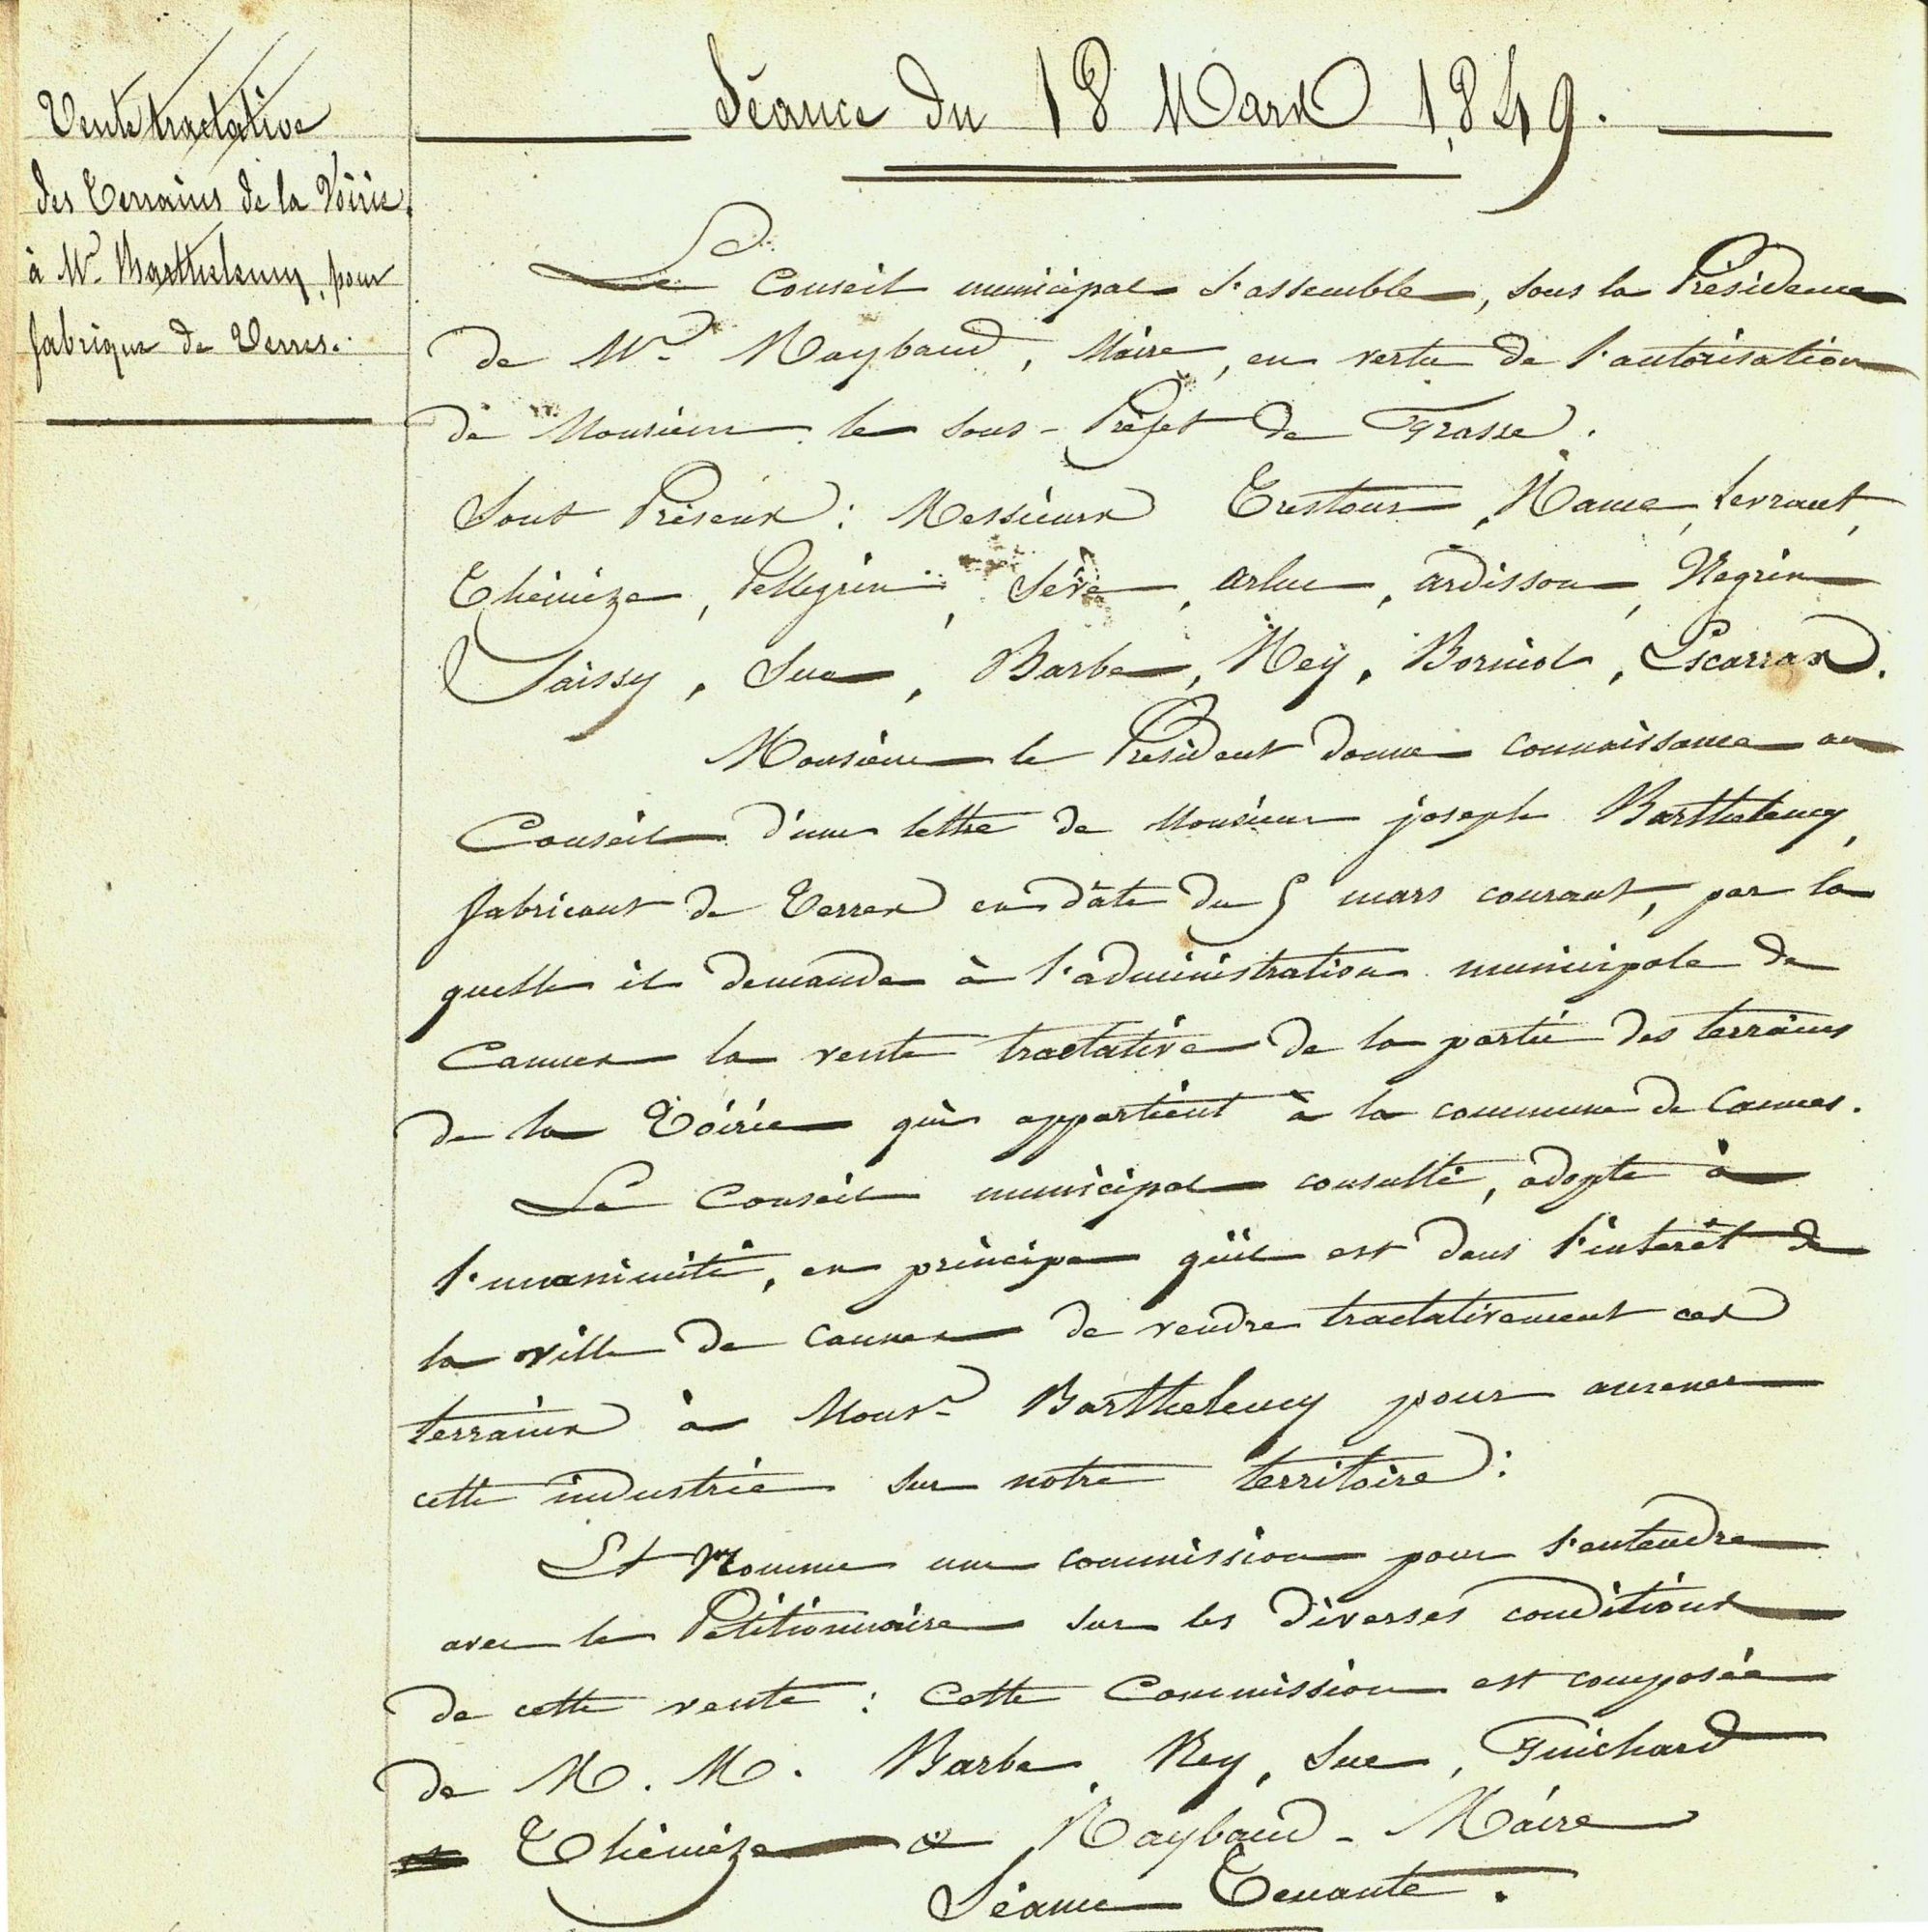 Vente tractative
des Terrains de la Voirie,
à Mr. Barthelemy, pour
fabrique de Verres.
Séance du 18 Mars 1849.
Le Conseil municipal s'assemble, sous la Présidence
de Mr. Raybaud, Maire, en vertu de l'autorisation
de Monsieur le sous-Préfet de Grasse.
Sont Présens : Messieurs Tristour, Rame, Levraut,
Théniéze, Pellegrin, Sève, Arluc, ardisson, Negrin
Saissy, Sue, Barbe, Rey, Borniol, Escarras.
Monsieur le Président donne connaissance au
Conseil d'une lettre de Monsieur joseph Barthelemy,
fabricant de Verres en date du 5 mars courant, par la
quelle il demande à l'administration municipale de
Cannes la vente tractative de la partie des terrains
de la Voirie qui appartient à la commune de Cannes.
Le Conseil municipal consulté, adopte à
l'unanimité, en principe qu'il est dans l'interêt de
la ville de Cannes de vendre tractativement ces
terrains à Monsr. Barthelemy pour amener
cette industrie sur notre territoire :
Et Nomme une commission pour s'entendre
avec le Pétitionnaire sur les diverses conditions
de cette vente : Cette Commission est composée
de M. M. Barbe, Rey, Sue, Guichard
Théniéze & Raybaud - Maire
Séance Tenante.